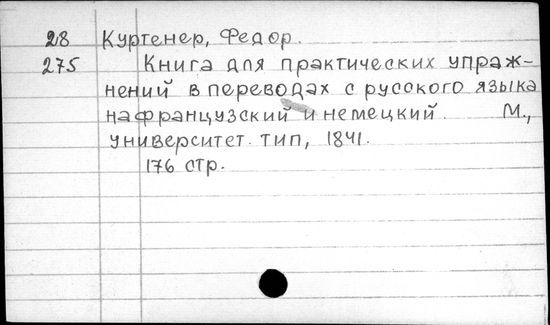 28 Куртенер, Федор.
275 Книга для практических упраж-
нений в переводах с русского языка
на французский и немецкий. М.,
университет. тип, 1841.
176 стр.